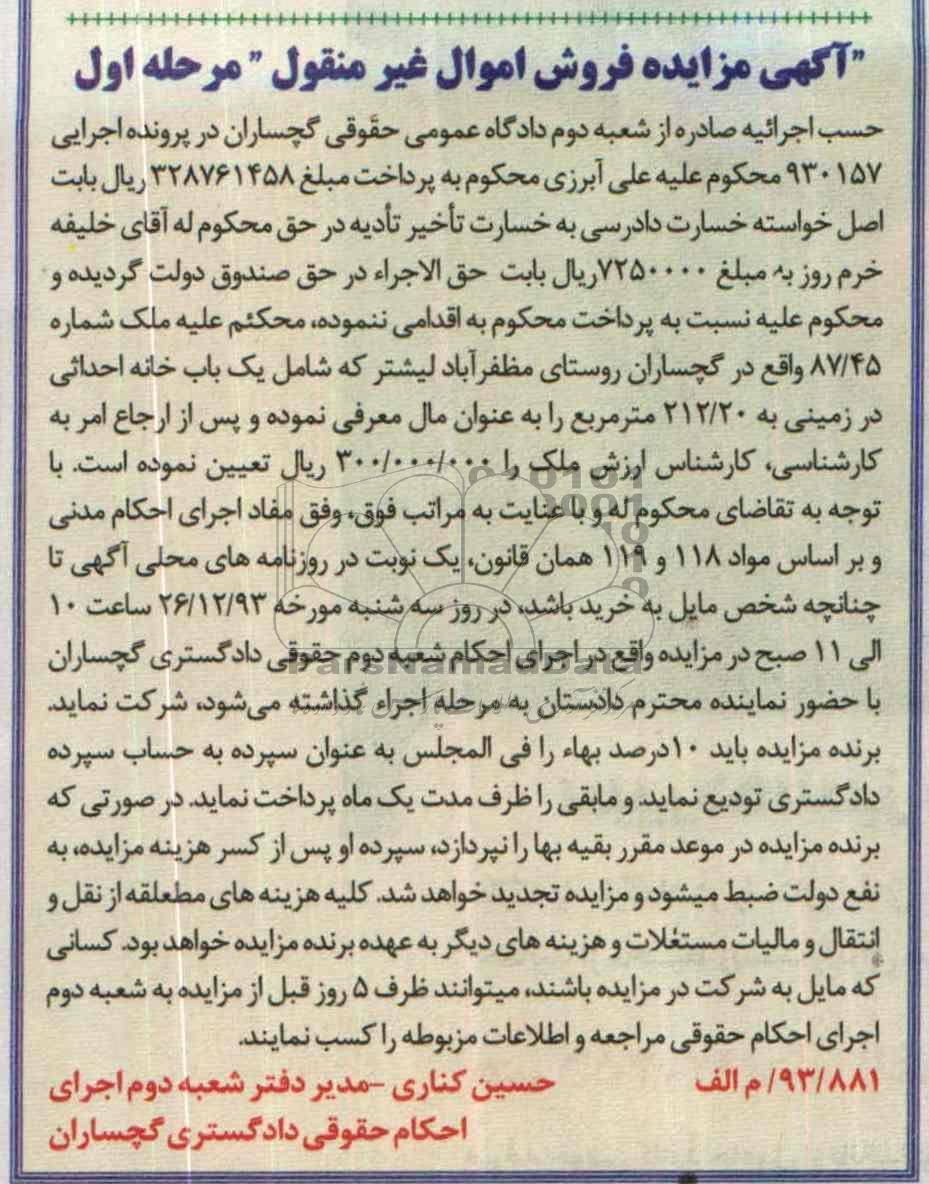 "آگهی مزایده فروش اموال غیر منقول" مرحله اول
حسب اجرائیه صادره از شعبه دوم دادگاه عمومی حقوقی گچساران در پرونده اجرایی
۹۳۰۱۵۷ محکوم علیه علی آبرزی محکوم به پرداخت مبلغ ۳۲۸۷۶۱۴۵۸ ریال بابت
اصل خواسته خسارت دادرسی به خسارت تأخیر تأدیه در حق محکوم له آقای خلیفه
خرم روز به مبلغ ۷۲۵۰۰۰۰ریال بابت حق الاجراء در حق صندوق دولت گردیده و
محکوم علیه نسبت به پرداخت محکوم به اقدامی ننموده، محکئم علیه ملک شماره
۸۷/۴۵ واقع در گچساران روستای مظفرآباد لیشتر که شامل یک باب خانه احداثی
در زمینی به ۲۱۲/۲۰ مترمربع را به عنوان مال معرفی نموده و پس از ارجاع امر به
کارشناسی، کارشناس ارزش ملک را ۳۰۰/۰۰۰/۰۰۰ ریال تعیین نموده است. با
توجه به تقاضای محکوم له و با عنایت به مراتب فوق، وفق مفاد اجرای احکام مدنی
و بر اساس مواد ۱۱۸ و ۱۱۹ همان قانون، یک نوبت در روزنامه های محلی آگهی تا
چنانچه شخص مایل به خرید باشد، در روز سه شنبه مورخه ۲۶/۱۲/۹۳ ساعت ۱۰
الی ۱۱ صبح در مزایده واقع در اجرای احکام شعبه دوم حقوقی دادگستری گچساران
ParsNamadData
با حضور نماینده محترم دادستان به مرحله اجراء گذاشته می‌شود، شرکت نماید.
برنده مزایده باید ۱۰درصد بهاء را فی المجلس به عنوان سپرده به حساب سپرده
دادگستری تودیع نماید. و مابقی را ظرف مدت یک ماه پرداخت نماید. در صورتی که
برنده مزایده در موعد مقرر بقیه بها را نپردازد، سپرده او پس از کسر هزینه مزایده، به
نفع دولت ضبط میشود و مزایده تجدید خواهد شد. کلیه هزینه های مطعلقه از نقل و
انتقال و مالیات مستغلات و هزینه های دیگر به عهده برنده مزایده خواهد بود. کسانی
که مایل به شرکت در مزایده باشند، میتوانند ظرف ۵ روز قبل از مزایده به شعبه دوم
اجرای احکام حقوقی مراجعه و اطلاعات مزبوطه را کسب نمایند.
۹۳/۸۸۱/ م الف حسین کناری -مدیر دفتر شعبه دوم اجرای
احکام حقوقی دادگستری گچساران